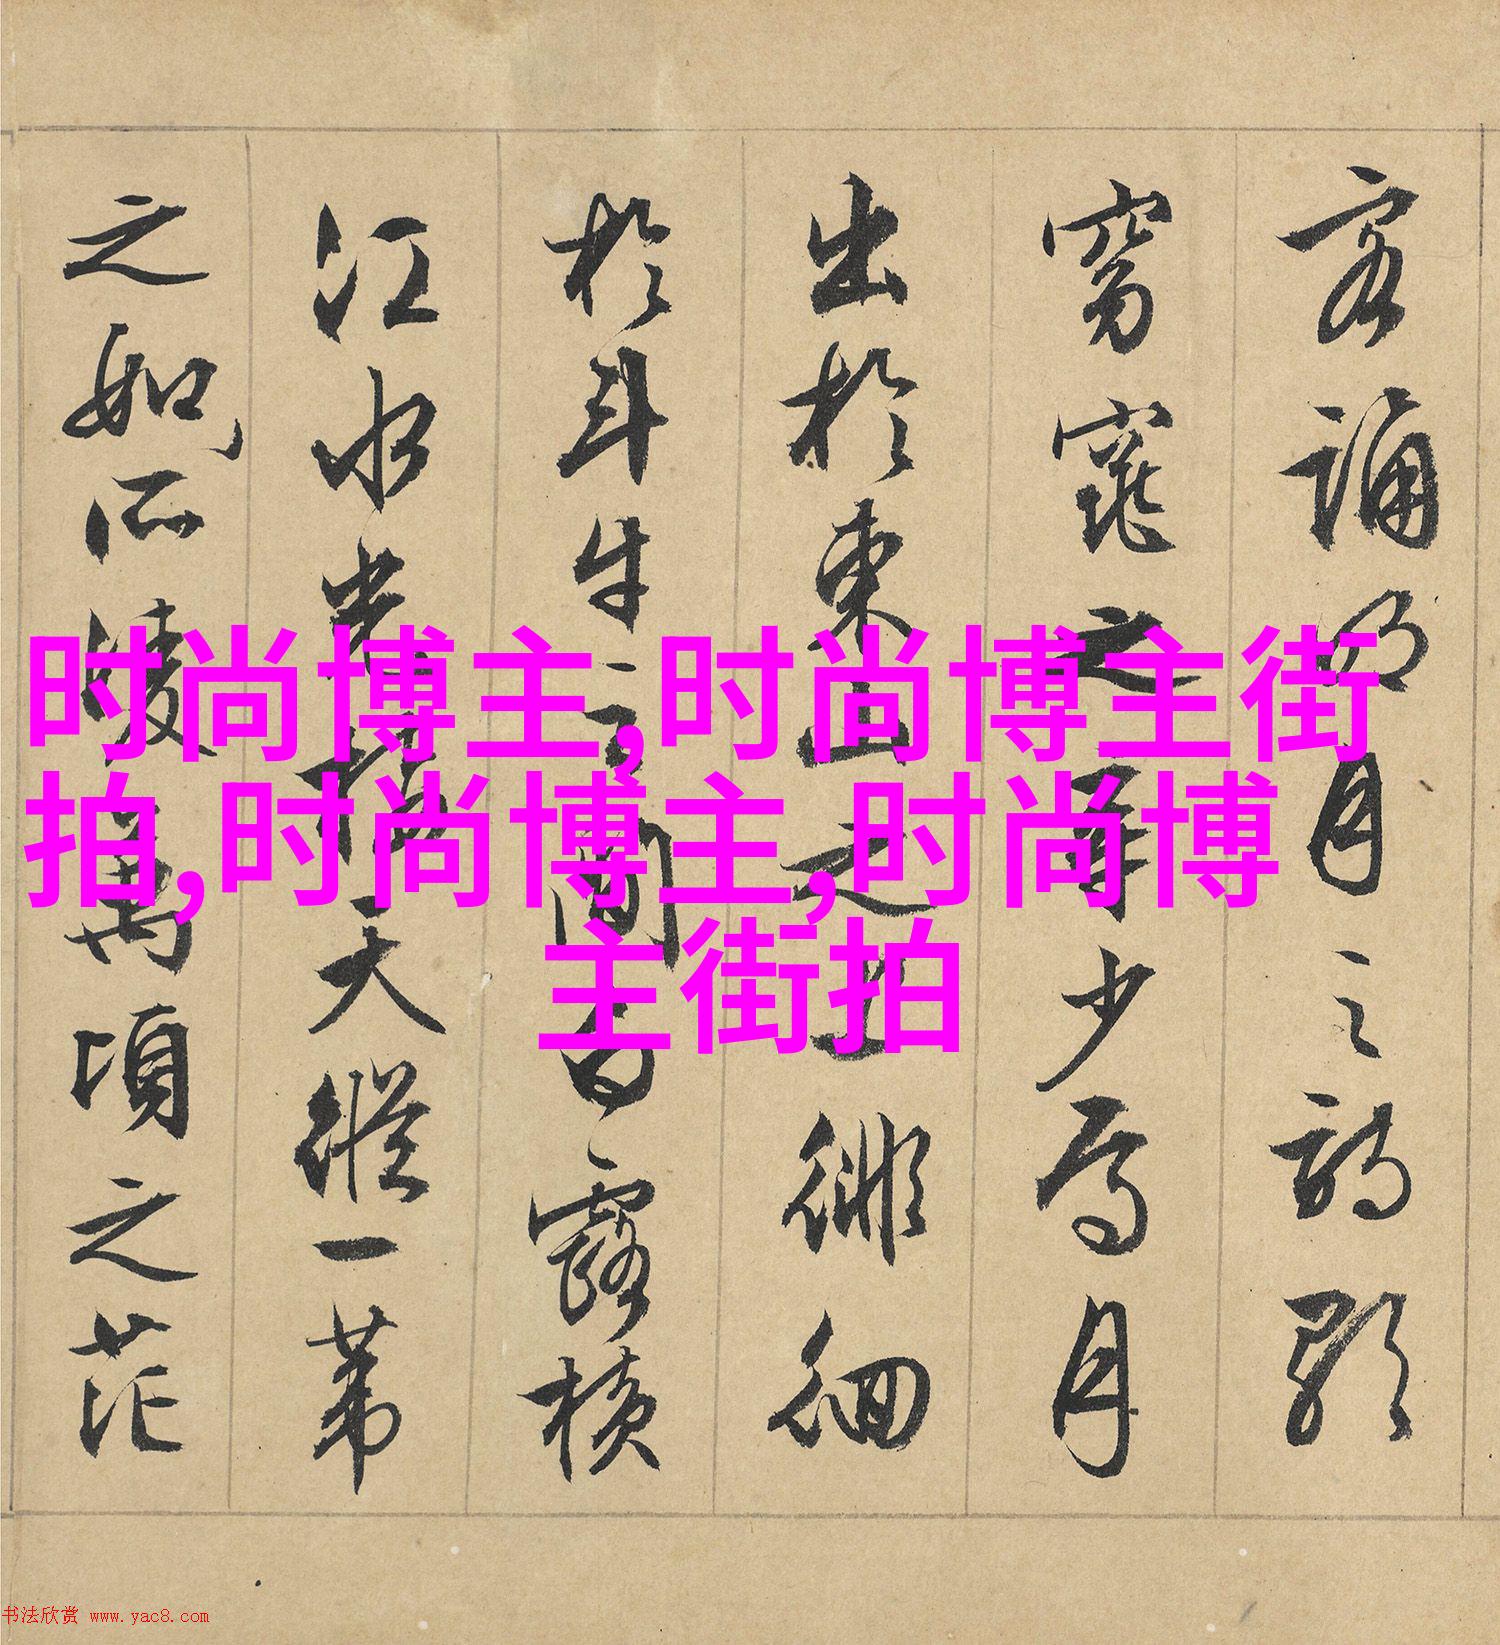 客誦明月之詩歌
窈窕之章少焉月
出於東山之上徘徊
於斗牛之間白露橫
江水光接天縱一葦
之如所凌萬頃之茫
时尚博主,时尚博主街
拍,时尚博主,时尚博
主街拍
书法欣赏 www.yac8.com